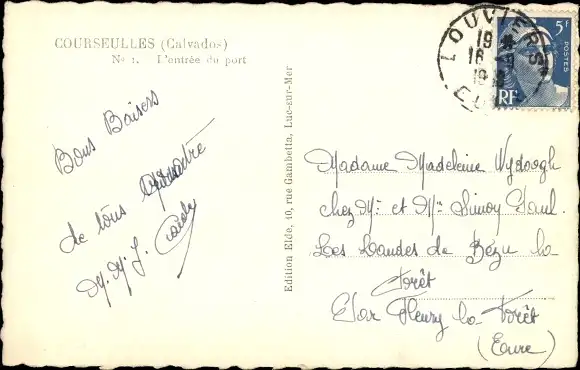 COURSEULLES (Calvados)
No 1. L'entrée du port
Bons Baisers
de tous quatre
M. M. J.
Edition Elde, 10, rue Gambetta, Luc-sur-Mer
LOUVIERS
19 H
16
5F
POSTES
RF
Madame Madeleine
chez Mr et Mme Simoy Paul
Les Landes de Bézu la
Forêt
Par Fleury la Forêt
(Eure)